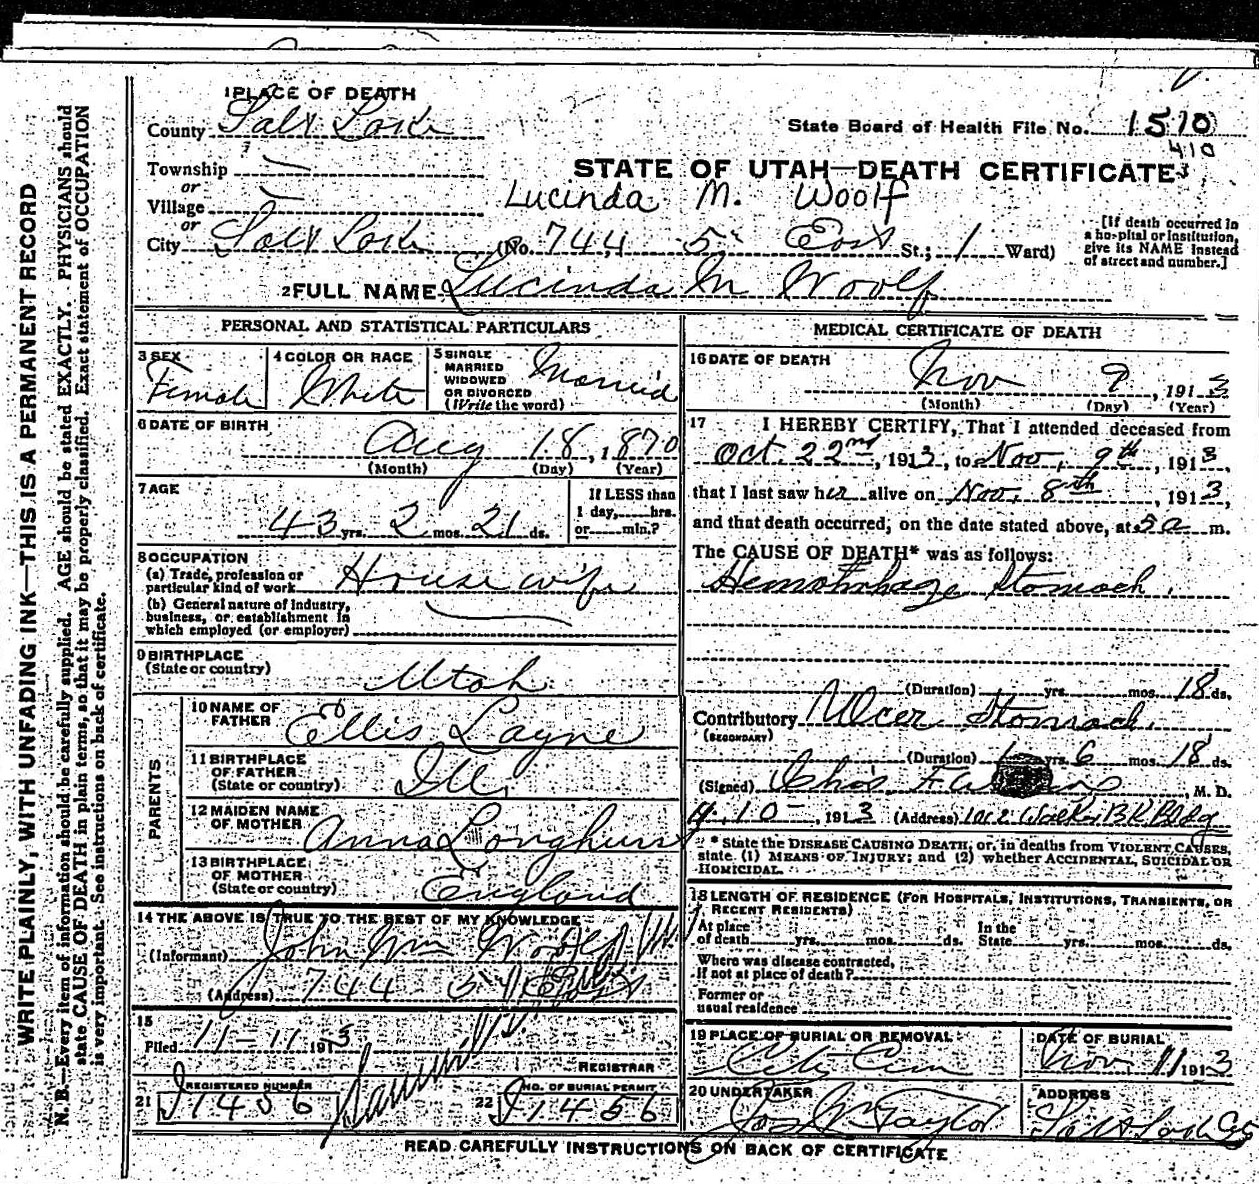 1 PLACE OF DEATH
County Salt Lake
State Board of Health File No. 1510
410
Township
or
Village
or
STATE OF UTAH—DEATH CERTIFICATE
Lucinda M. Woolf
City Salt Lake (No. 744, 5" East St.; 1 Ward)
[If death occurred in
a hospital or institution,
give its NAME instead
of street and number.]
2 FULL NAME Lucinda M Woolf
WRITE PLAINLY, WITH UNFADING INK—THIS IS A PERMANENT RECORD
N. B.—Every item of information should be carefully supplied. AGE should be stated EXACTLY. PHYSICIANS should
state CAUSE OF DEATH in plain terms, so that it may be properly classified. Exact statement of OCCUPATION
is very important. See instructions on back of certificate.
PERSONAL AND STATISTICAL PARTICULARS
3 SEX
Female
4 COLOR OR RACE
White
5 SINGLE
MARRIED
WIDOWED
OR DIVORCED
(Write the word)
Married
6 DATE OF BIRTH
Aug 18, 1870
(Month) (Day) (Year)
7 AGE
43 yrs. 2 mos. 21 ds.
If LESS than
1 day, hrs.
or min.?
8 OCCUPATION
(a) Trade, profession or
particular kind of work House wife
(b) General nature of industry,
business, or establishment in
which employed (or employer)
9 BIRTHPLACE
(State or country)
Utah
PARENTS
10 NAME OF
FATHER
Ellis Layne
11 BIRTHPLACE
OF FATHER
(State or country)
Ill.
12 MAIDEN NAME
OF MOTHER
Anna Longhurst
13 BIRTHPLACE
OF MOTHER
(State or country)
England
14 THE ABOVE IS TRUE TO THE BEST OF MY KNOWLEDGE
(Informant) John Wm Woolf
(Address) 744 5" East
15
Filed 11-11 1913
REGISTRAR
21 REGISTERED NUMBER
I1456
22 NO. OF BURIAL PERMIT
I1456
MEDICAL CERTIFICATE OF DEATH
16 DATE OF DEATH
Nov 9, 1913
(Month) (Day) (Year)
17 I HEREBY CERTIFY, That I attended deceased from
Oct. 22nd, 1913, to Nov. 9th, 1913,
that I last saw her alive on Nov. 8th, 1913,
and that death occurred, on the date stated above, at 5 a m.
The CAUSE OF DEATH* was as follows:
Hemorrhage Stomach.
(Duration) yrs. mos. 18 ds.
Contributory Ulcer Stomach.
(SECONDARY)
(Duration) 1 yrs. 6 mos. 18 ds.
(Signed) Chas. F. , M. D.
11, 10-, 1913 (Address) 1012 Walker BK Bldg
* State the DISEASE CAUSING DEATH; or, in deaths from VIOLENT CAUSES,
state (1) MEANS OF INJURY; and (2) whether ACCIDENTAL, SUICIDAL OR
HOMICIDAL.
18 LENGTH OF RESIDENCE (FOR HOSPITALS, INSTITUTIONS, TRANSIENTS, OR
RECENT RESIDENTS)
At place
of death yrs. mos. ds.
In the
State yrs. mos. ds.
Where was disease contracted,
if not at place of death?
Former or
usual residence
19 PLACE OF BURIAL OR REMOVAL
City Cem
DATE OF BURIAL
Nov. 11 1913
20 UNDERTAKER
Jos Wm Taylor
ADDRESS
Salt Lake Cy
READ CAREFULLY INSTRUCTIONS ON BACK OF CERTIFICATE